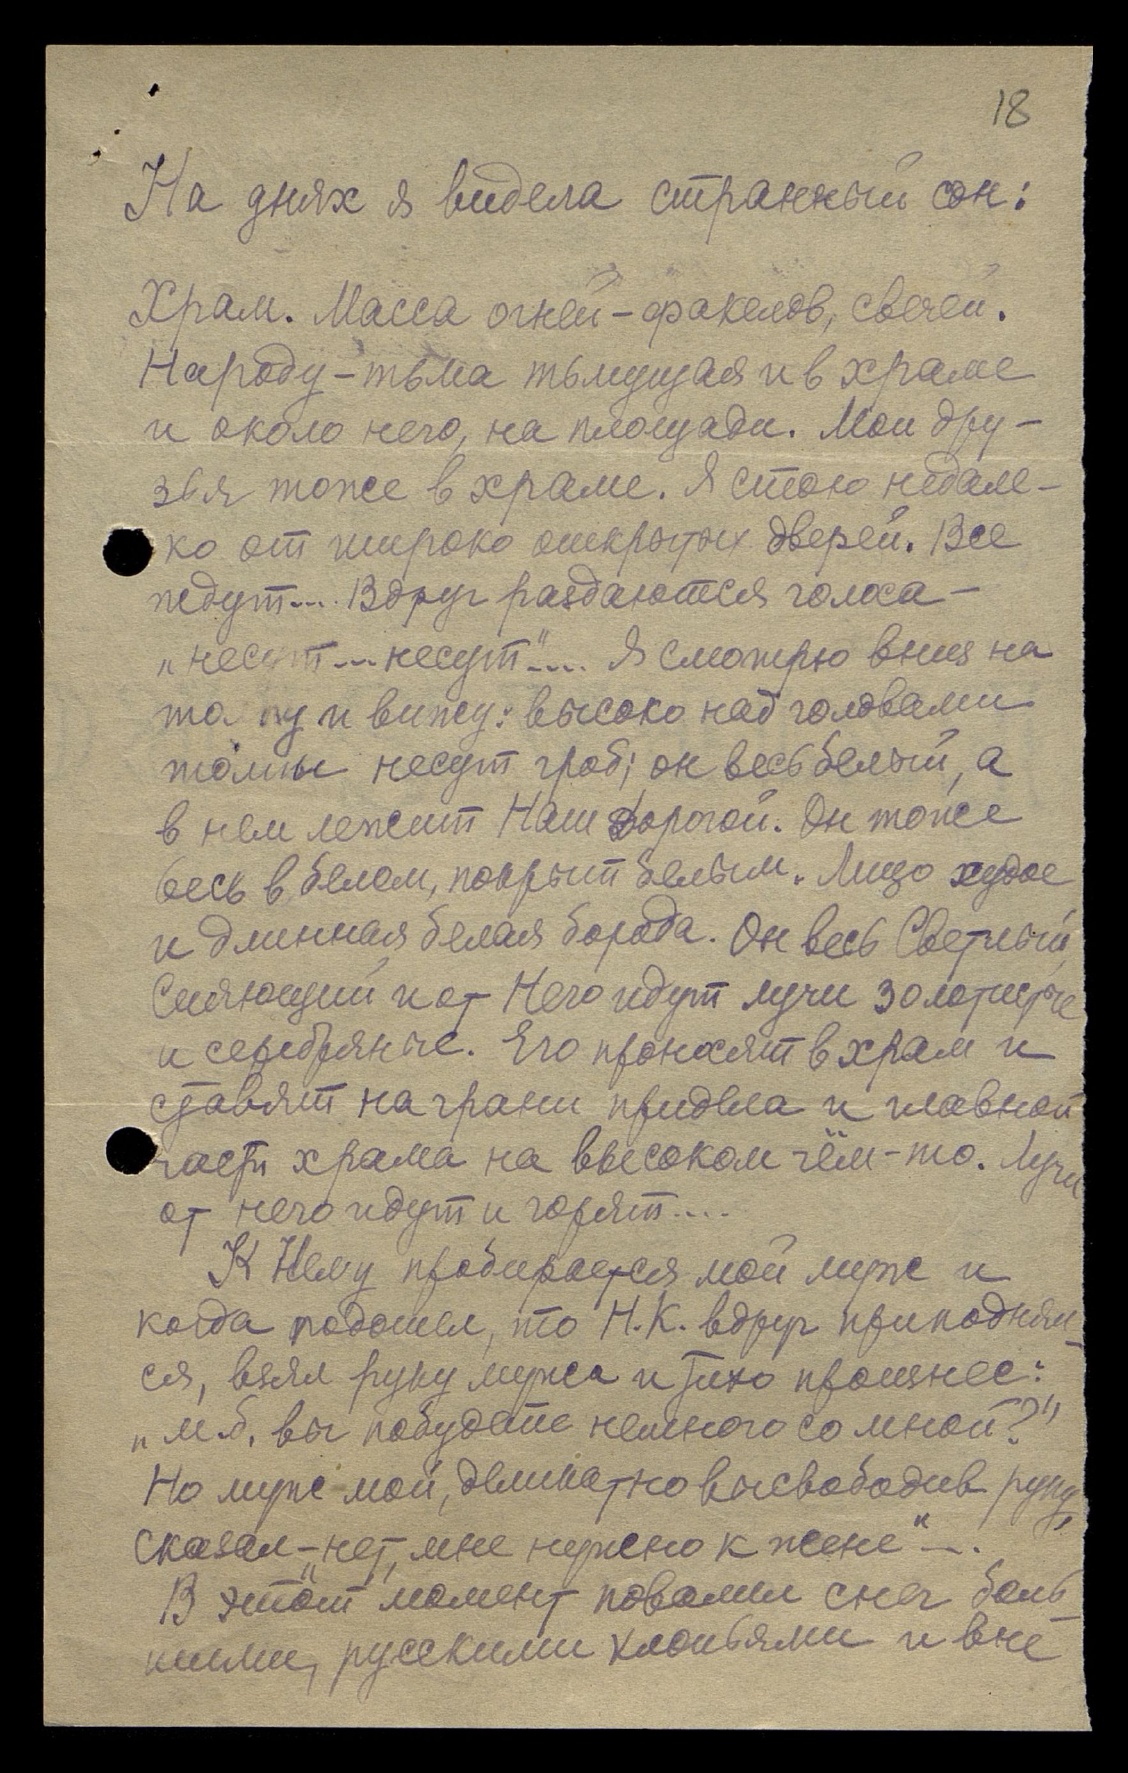 18
На днях я видела странный сон:
Храм. Масса огней – факелов, свечей.
Народу – тьма тьмущая и в храме
и около него, на площади. Мои дру-
зья тоже в храме. Я стою недале-
ко от широко открытых дверей. Все
ждут... Вдруг раздаются голоса –
„несут... несут"... Я смотрю вниз на
то пу и вижу: высоко над головами
толпы несут гроб; он весь белый, а
в нем лежит Наш Дорогой. Он тоже
весь в белом, покрыт белым. Лицо худое
и длинная белая борода. Он весь Светлый,
Сияющий и от Него идут лучи золотистые
и серебряные. Его проносят в храм и
ставят на грани придела и главной
части храма на высоком чём-то. Лучи
от него идут и горят....
К Нему пробирается мой муж и
когда подошел, то Н.К. вдруг приподнял-
ся, взял руку мужа и тихо произнес:
„М.б. вы побудете немного со мной?"
Но муж мой, деликатно высвободив руку,
сказал – „нет, мне нужно к жене"...
В этот момент повалил снег боль-
шими, русскими хлопьями и вне